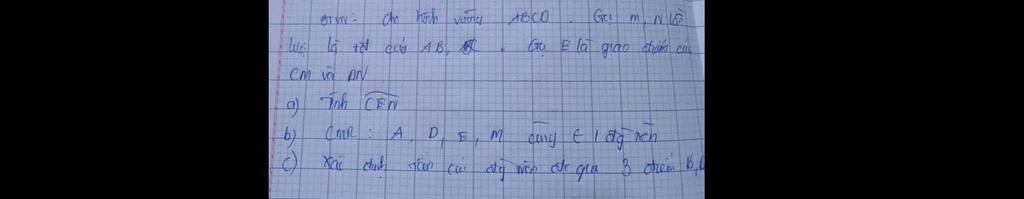 BTVN: Cho hình vuông ABCD. Gọi M, N lần
lượt là tđ của AB, BC. Gọi E là giao điểm của
CM với DN
a) Tính CEN
b) CMR: A, D, E, M cùng ∈ 1 đg tròn
c) Xác định tâm của đg tròn đi qua 3 điểm B,